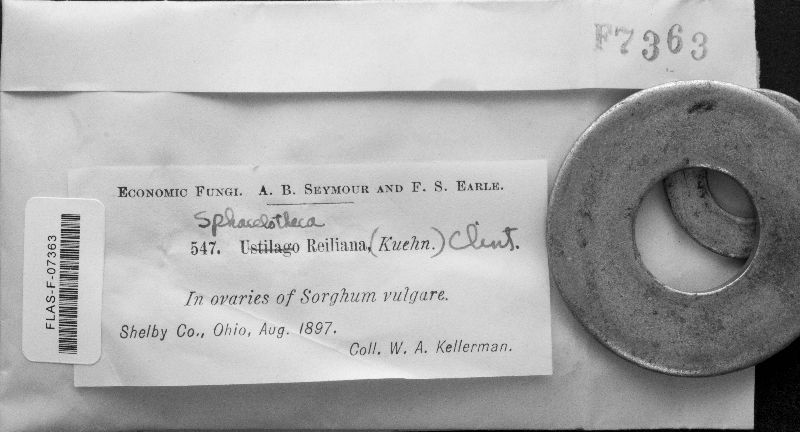 F7363
ECONOMIC FUNGI. A. B. SEYMOUR AND F. S. EARLE.
Sphacelotheca
547. Ustilago Reiliana, (Kuehn.) Clint.
In ovaries of Sorghum vulgare.
Shelby Co., Ohio, Aug. 1897.
Coll. W. A. Kellerman.
FLAS-F-07363